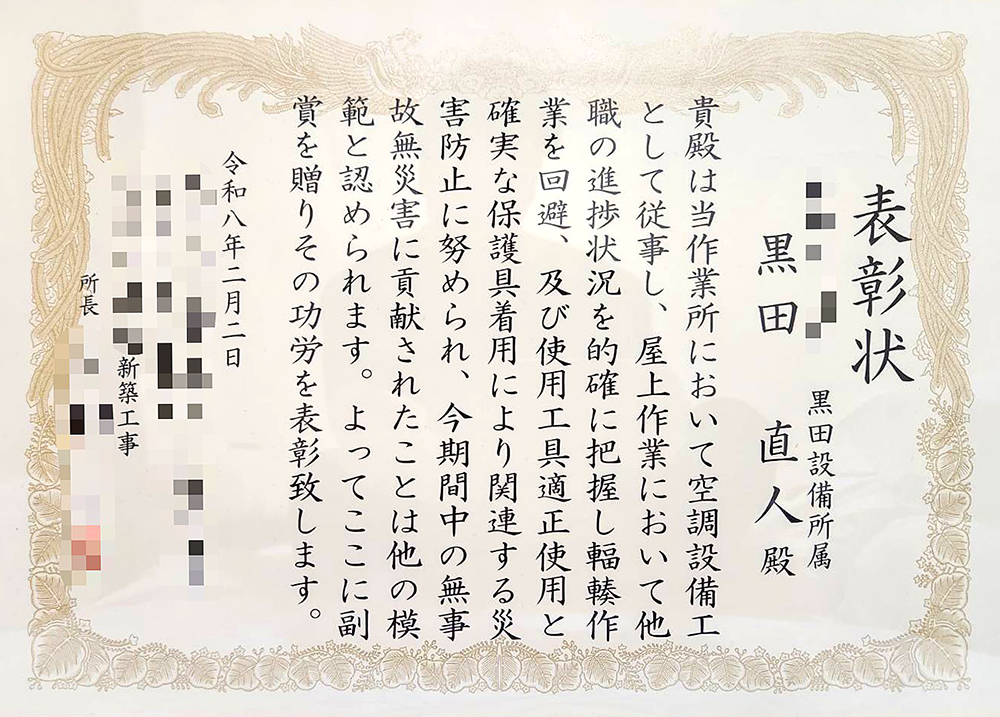 表彰状
黒田設備所属
黒田 直人殿
貴殿は当作業所において空調設備工
として従事し、屋上作業において他
職の進捗状況を的確に把握し輻輳作
業を回避、及び使用工具適正使用と
確実な保護具着用により関連する災
害防止に努められ、今期間中の無事
故無災害に貢献されたことは他の模
範と認められます。よってここに副
賞を贈りその功労を表彰致します。
令和八年二月二日
新築工事
所長